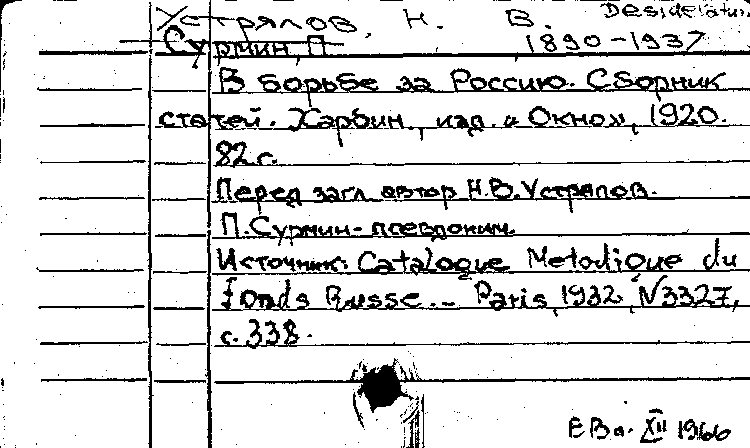 Устрялов, Н. В. Desideratum
Сурмин, П. 1890-1937
В борьбе за Россию. Сборник
статей. Харбин., изд. „Окно", 1920.
82 с.
Перед загл. автор Н.В. Устрялов.
П. Сурмин - псевдоним.
Источник: Catalogue Metodique du
fonds Russe. - Paris, 1932, N 3327,
с. 338.
ЕВа. XII 1966